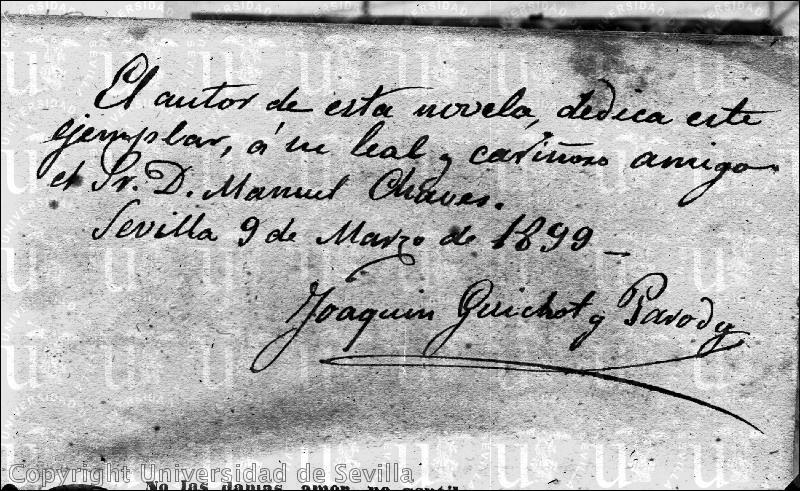 El autor de esta novela, dedica este
ejemplar, á su leal y cariñoso amigo
el Sr. D. Manuel Chaves.
Sevilla 9 de Marzo de 1899
Joaquin Guichot y Parody
Copyright Universidad de Sevilla
No las damas, amor, no gentil